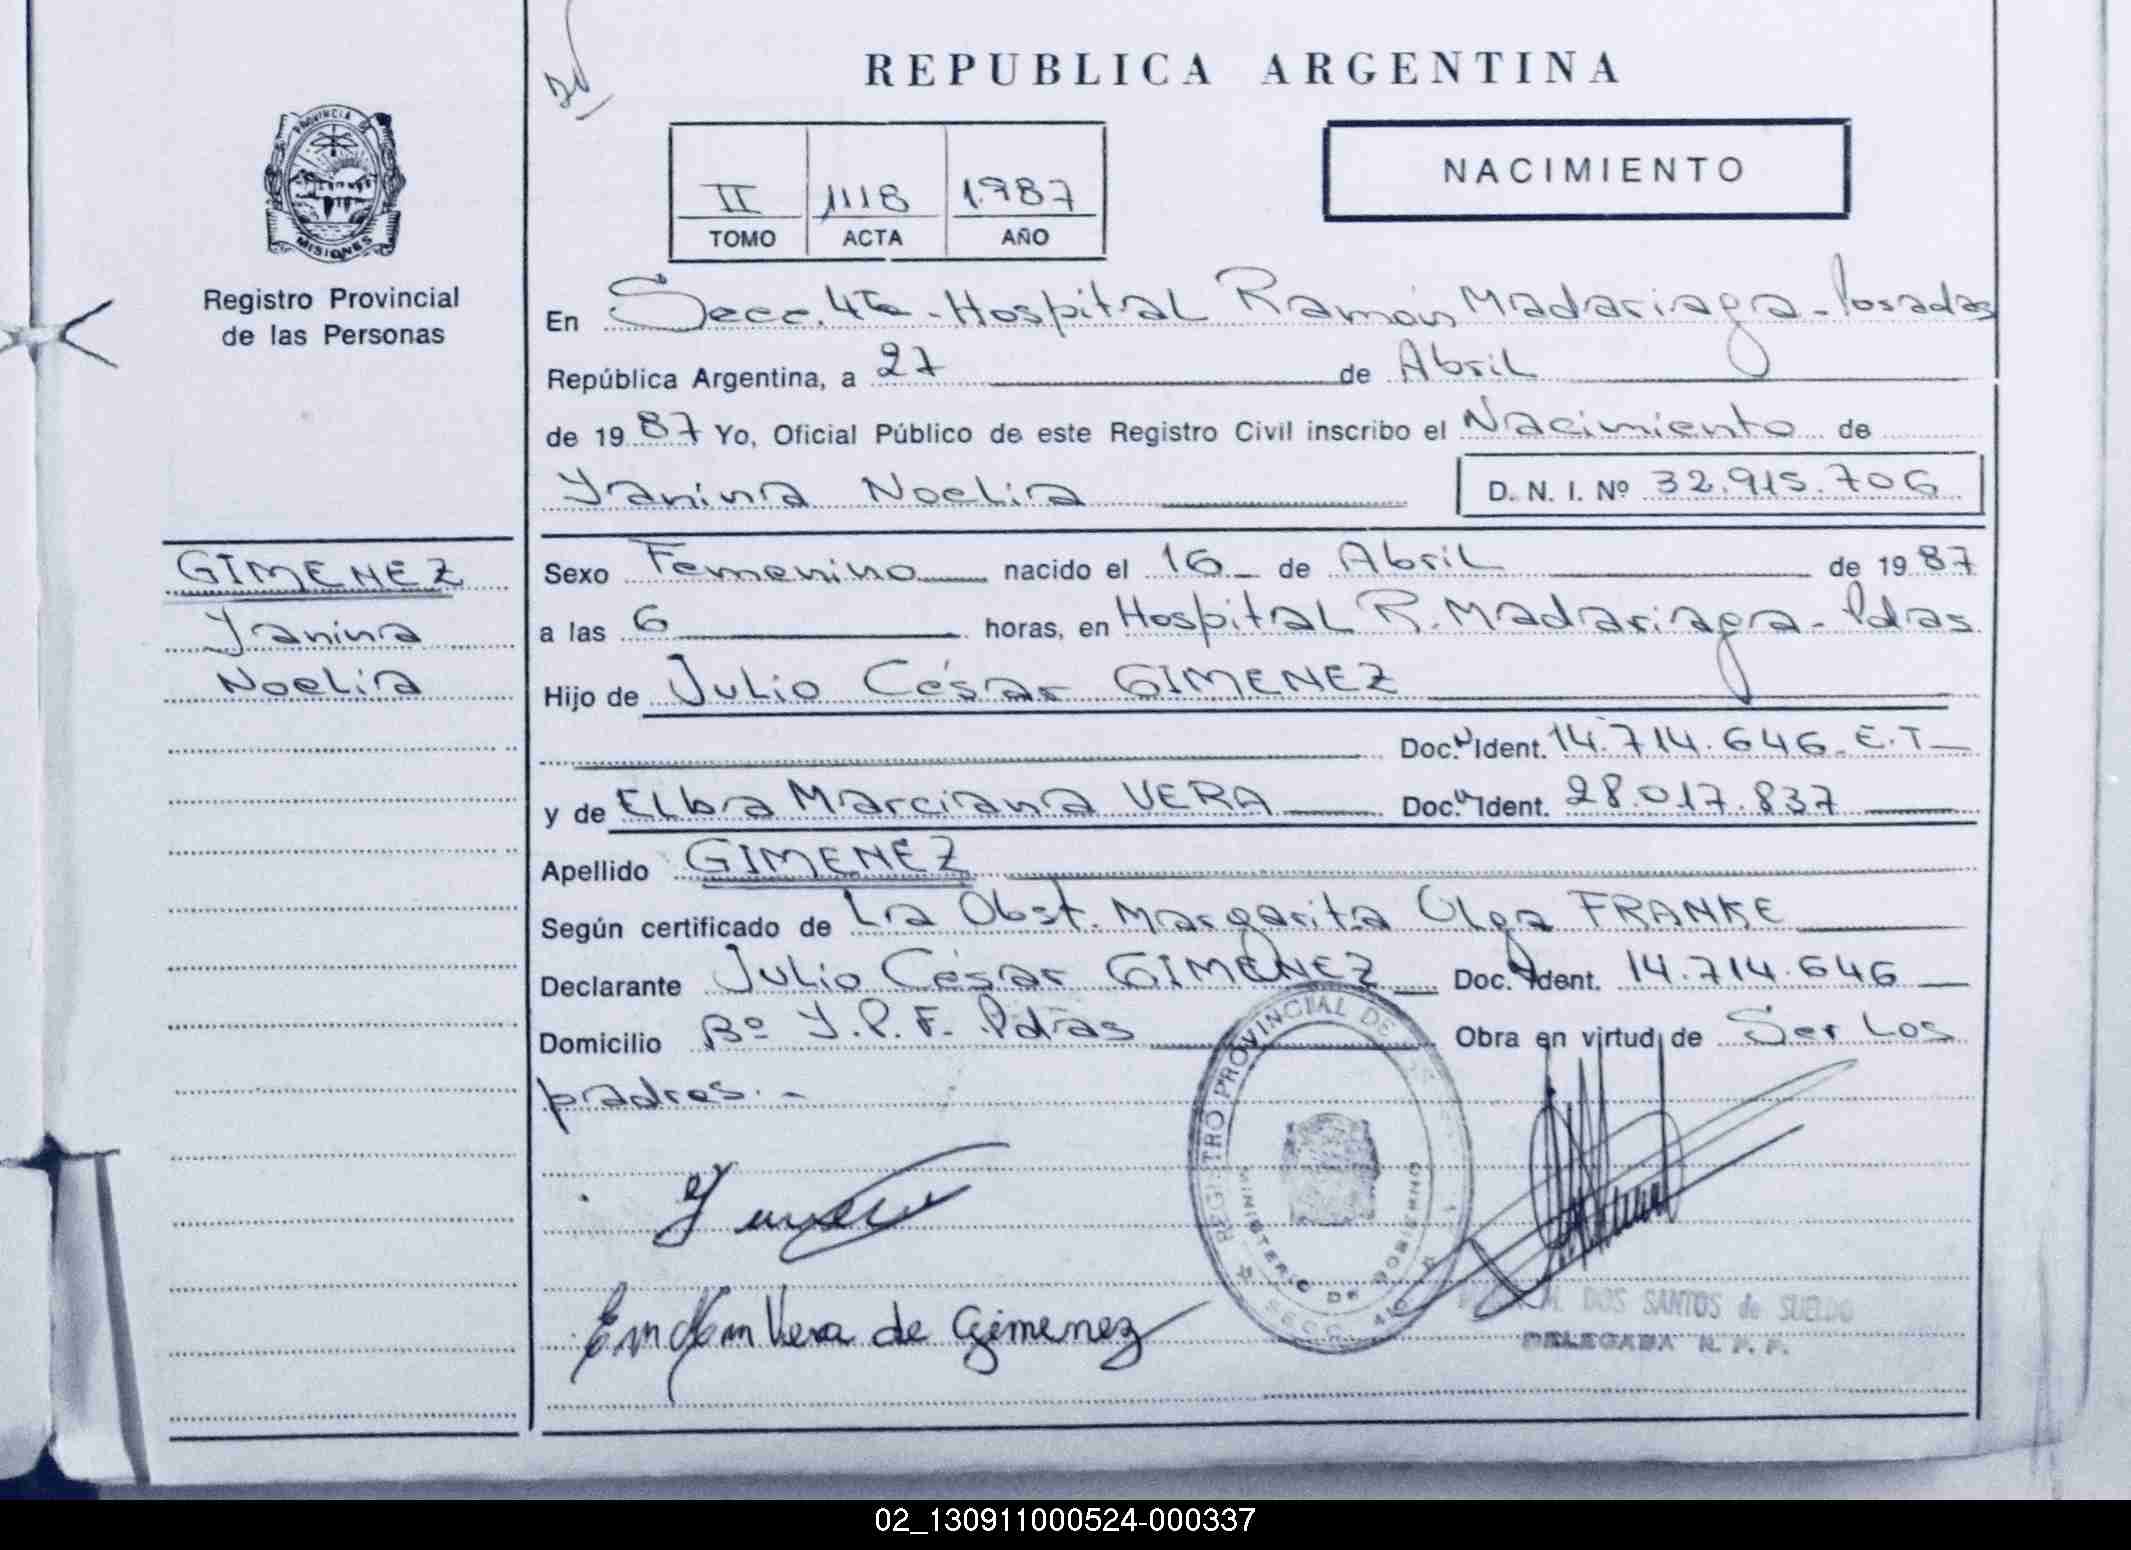 REPUBLICA ARGENTINA
PROVINCIA DE
MISIONES
Registro Provincial
de las Personas
II 1118 1.987
TOMO ACTA AÑO
NACIMIENTO
En Secc. 4ta - Hospital Ramón Madariaga - Posadas
República Argentina, a 27 de Abril
de 19 87 Yo, Oficial Público de este Registro Civil inscribo el Nacimiento de
Yanina Noelia D. N. I. Nº 32.915.706
GIMENEZ
Yanina
Noelia
Sexo Femenino nacido el 16 de Abril de 19 87
a las 6 horas, en Hospital R. Madariaga - Pdas
Hijo de Julio César GIMENEZ
Doc. Ident. 14.714.646 E.T
y de Elba Marciana VERA Doc. Ident. 28.017.837
Apellido GIMENEZ
Según certificado de La Obst. Margarita Olga FRANKE
Declarante Julio César GIMENEZ Doc. Ident. 14.714.646
Domicilio Bº Y.P.F. Pdas Obra en virtud de Ser Los
padres. -
REGISTRO PROVINCIAL DE
MINISTERIO DE GOBIERNO
SECC. 4ta
Vera de Gimenez
M. DOS SANTOS de SUELDO
DELEGADA R. P. P.
02_130911000524-000337